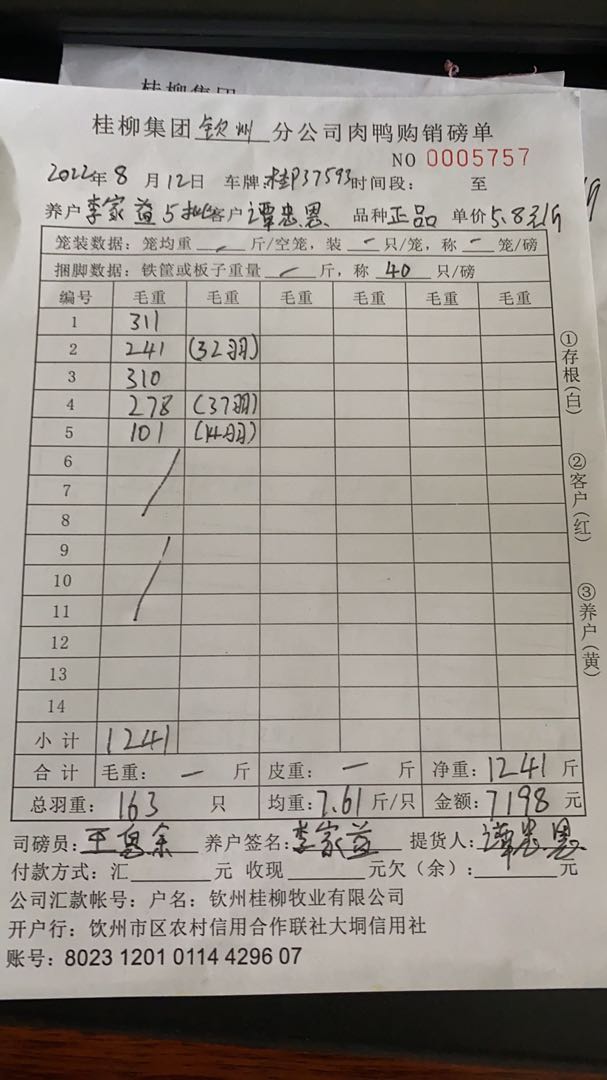 桂柳集团钦州分公司肉鸭购销磅单
NO 0005757
2022年8月12日 车牌:桂P37593时间段: 至
养户李家益5批客户谭忠恩 品种正品 单价5.8元/斤
笼装数据:笼均重 — 斤/空笼,装 — 只/笼,称 — 笼/磅
捆脚数据:铁筐或板子重量 — 斤,称 40 只/磅
编号 毛重 毛重 毛重 毛重 毛重 毛重
1 311
2 241 (32羽)
3 310
4 278 (37羽)
5 101 (14羽)
6
7
8
9
10
11
12
13
14
小计 1241
合计 毛重: — 斤 皮重: — 斤 净重:1241斤
总羽重: 163 只 均重:7.61斤/只 金额:7198元
司磅员: 养户签名:李家益 提货人:谭忠恩
付款方式:汇 元 收现 元欠(余): 元
公司汇款帐号:户名:钦州桂柳牧业有限公司
开户行:钦州市区农村信用合作联社大垌信用社
账号:8023 1201 0114 4296 07
①存根(白)
②客户(红)
③养户(黄)
桂柳集团